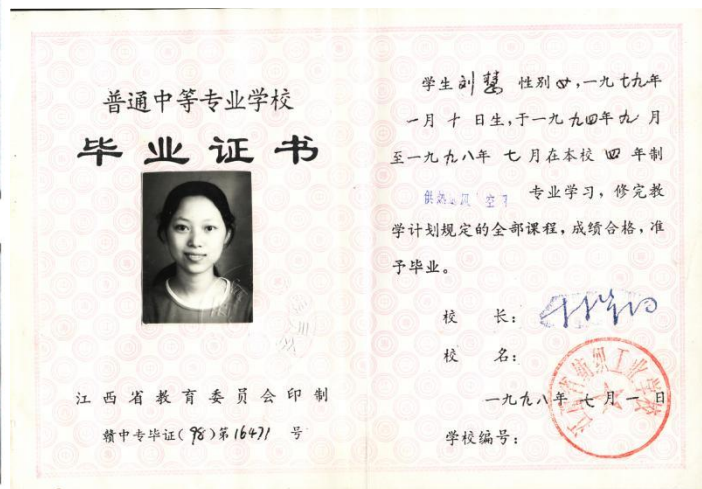 普通中等专业学校
毕业证书
江西省教育委员会印制
赣中专毕证(98)第16471号
学生刘慧 性别女,一九七九年
一月十日生,于一九九四年九月
至一九九八年七月在本校四年制
供热通风 空 专业学习,修完教
学计划规定的全部课程,成绩合格,准
予毕业。
校 长:
校 名:
江西省纺织工业学校
一九九八年七月一日
学校编号: